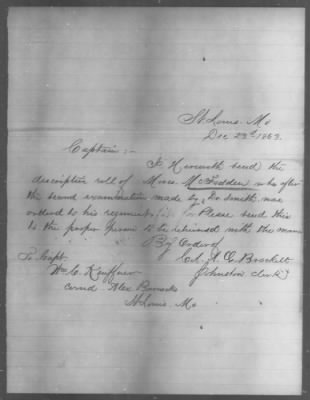 St. Louis. Mo
Dec 23d 1863.
Captain:-
I Herewith send the
descriptive roll of Moses McFadden who after
the second examination made by Dr Smith was
ordered to his regiment, Please send this
to the proper person to be returned with the man
By Order of
Col. A. G. Brackett
Johnston clerk
To Capt.
Wm. C. Kauffner
Comd. Alex Barracks
St Louis. Mo